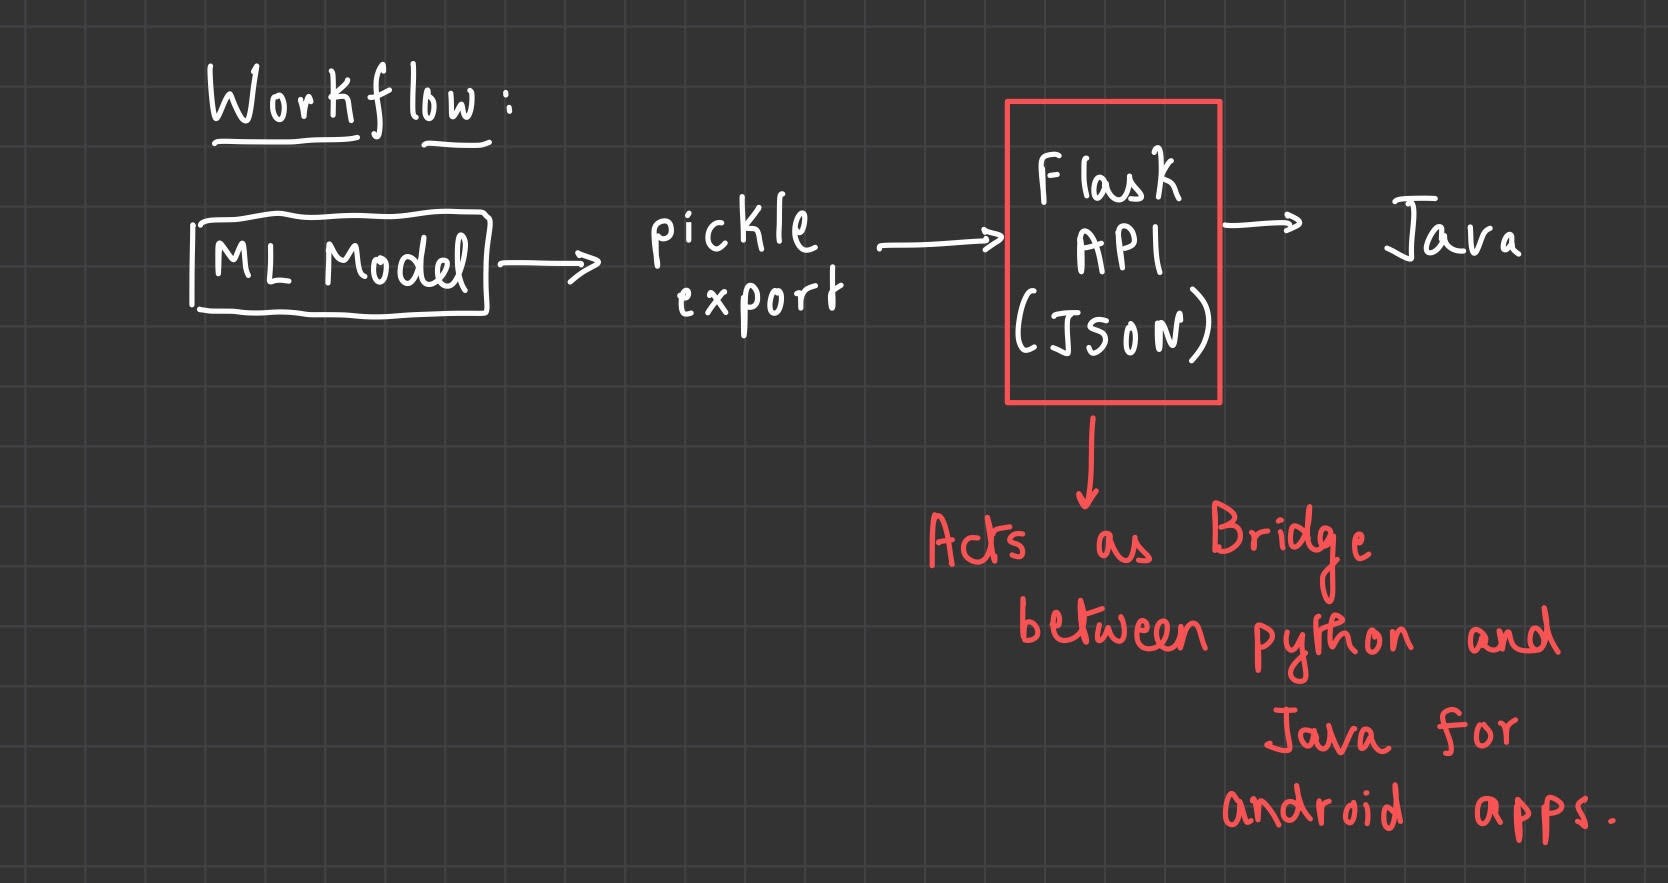 Workflow:
ML Model
pickle
export
Flask
API
(JSON)
Java
Acts as Bridge
between python and
Java for
android apps.